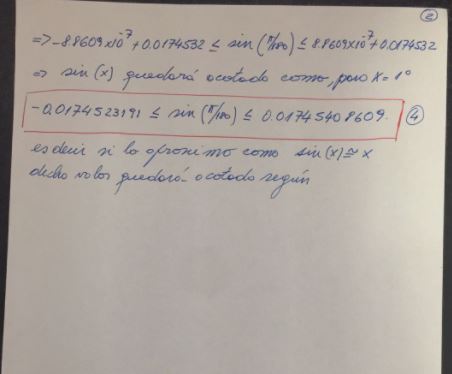 ②
=> -8.8609x10⁻⁷ + 0.0174532 ≤ sin(π/180) ≤ 8.8609x10⁻⁷ + 0.0174532
=> sin(x) quedará acotado como, para x = 1°
-0.0174523191 ≤ sin(π/180) ≤ 0.01745408609. ④
es decir si lo aproximo como sin(x) ≅ x
dicho valor quedará acotado según